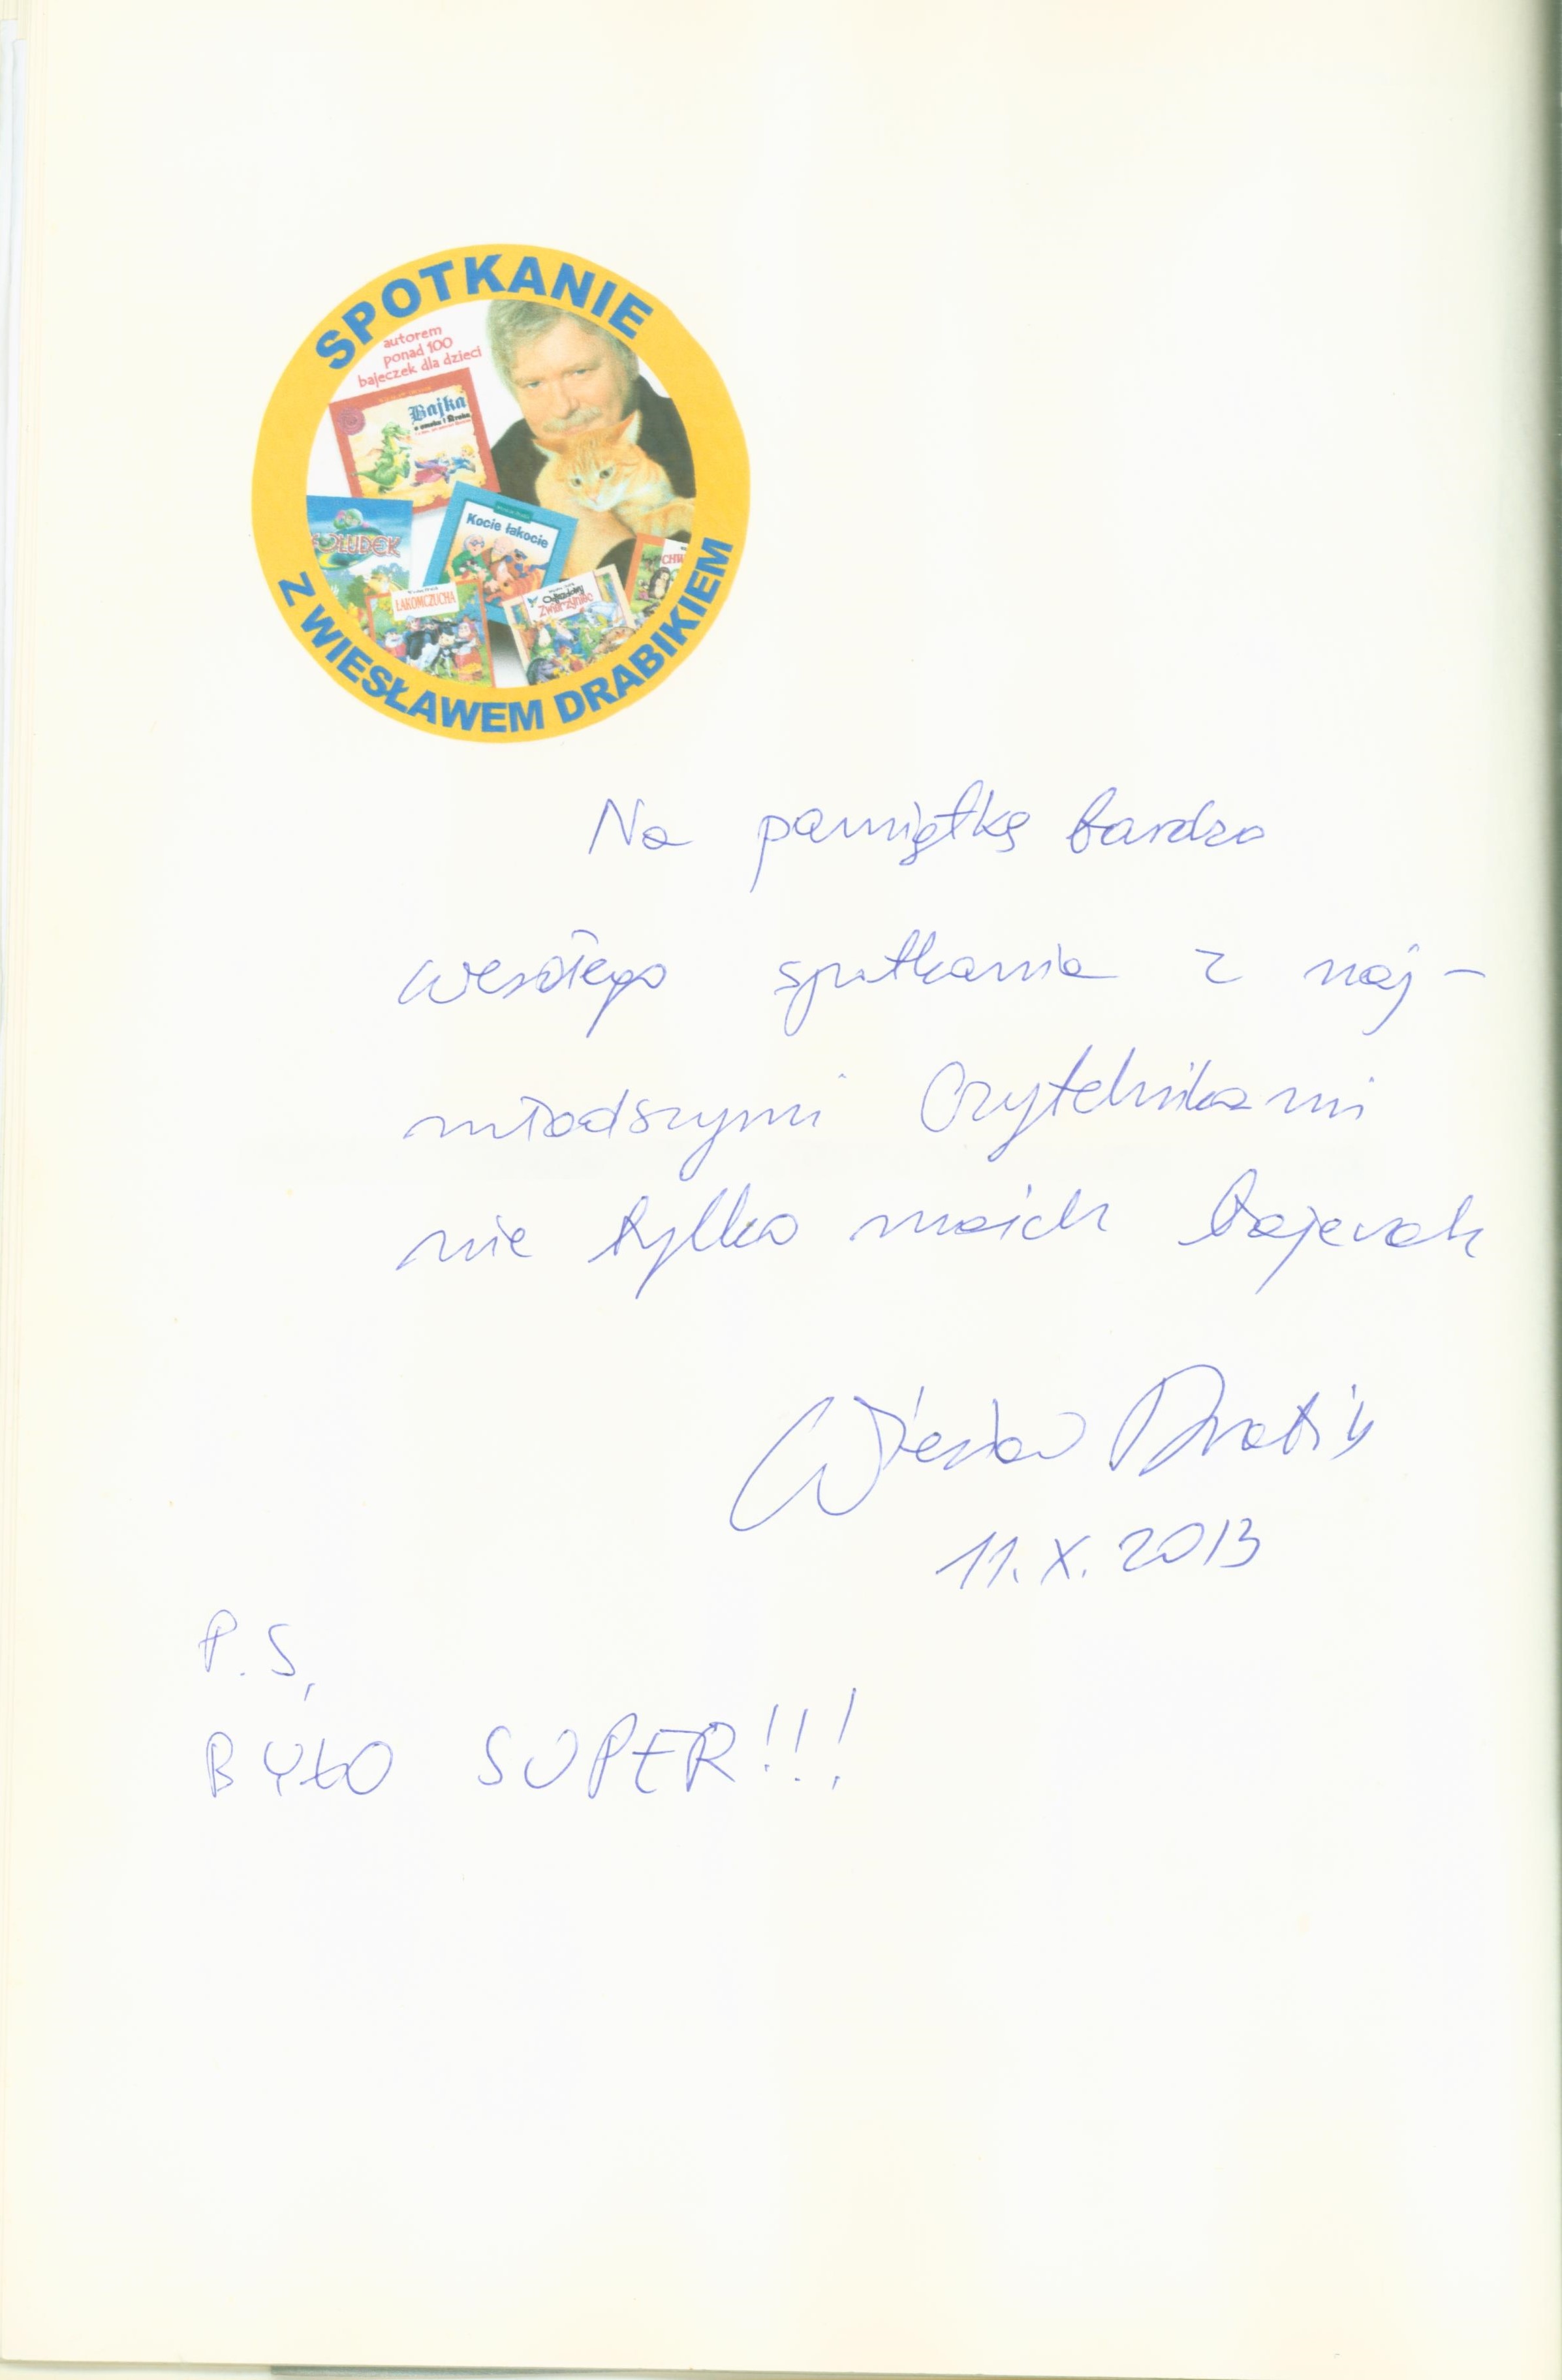 SPOTKANIE
autorem
ponad 100
bajeczek dla dzieci
Bajka
o smoku i
Kocie łakocie
ŁAKOMCZUCHA
Z WIESŁAWEM DRABIKIEM
Na pamiątkę bardzo
wesołego spotkania z naj-
młodszymi Czytelnikami
nie tylko moich bajeczek
Wiesław Drabik
11. X. 2013
P.S.
BYŁO SUPER!!!